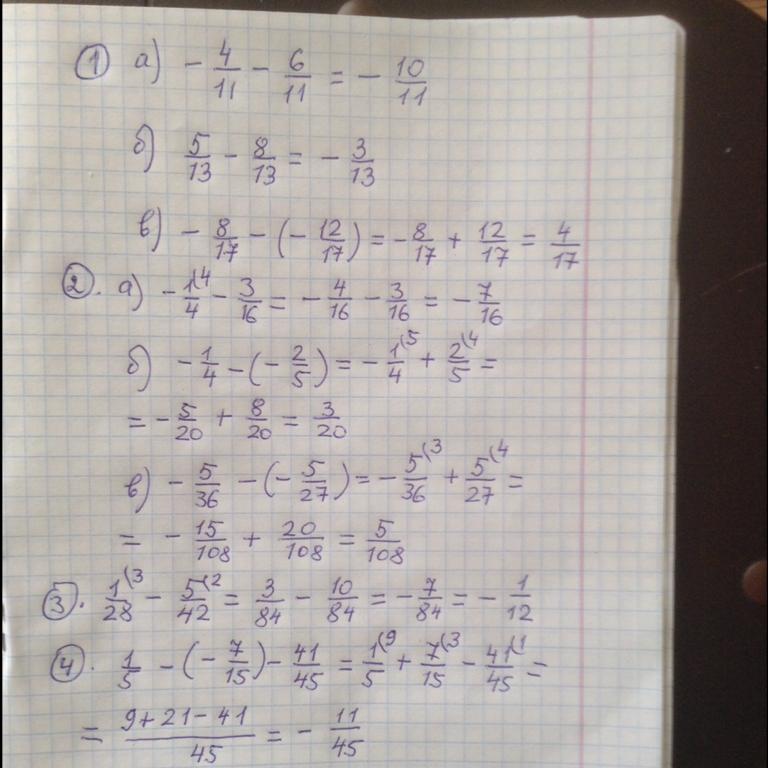 ① а) - 4/11 - 6/11 = - 10/11
б) 5/13 - 8/13 = - 3/13
в) - 8/17 - (- 12/17) = - 8/17 + 12/17 = 4/17
②. а) - 1(4/4 - 3/16 = - 4/16 - 3/16 = - 7/16
б) - 1/4 - (- 2/5) = - 1(5/4 + 2(4/5 =
= - 5/20 + 8/20 = 3/20
в) - 5/36 - (- 5/27) = - 5(3/36 + 5(4/27 =
= - 15/108 + 20/108 = 5/108
③. 1(3/28 - 5(2/42 = 3/84 - 10/84 = - 7/84 = - 1/12
④. 1/5 - (- 7/15) - 41/45 = 1(9/5 + 7(3/15 - 41(1/45 =
= 9+21-41/45 = - 11/45